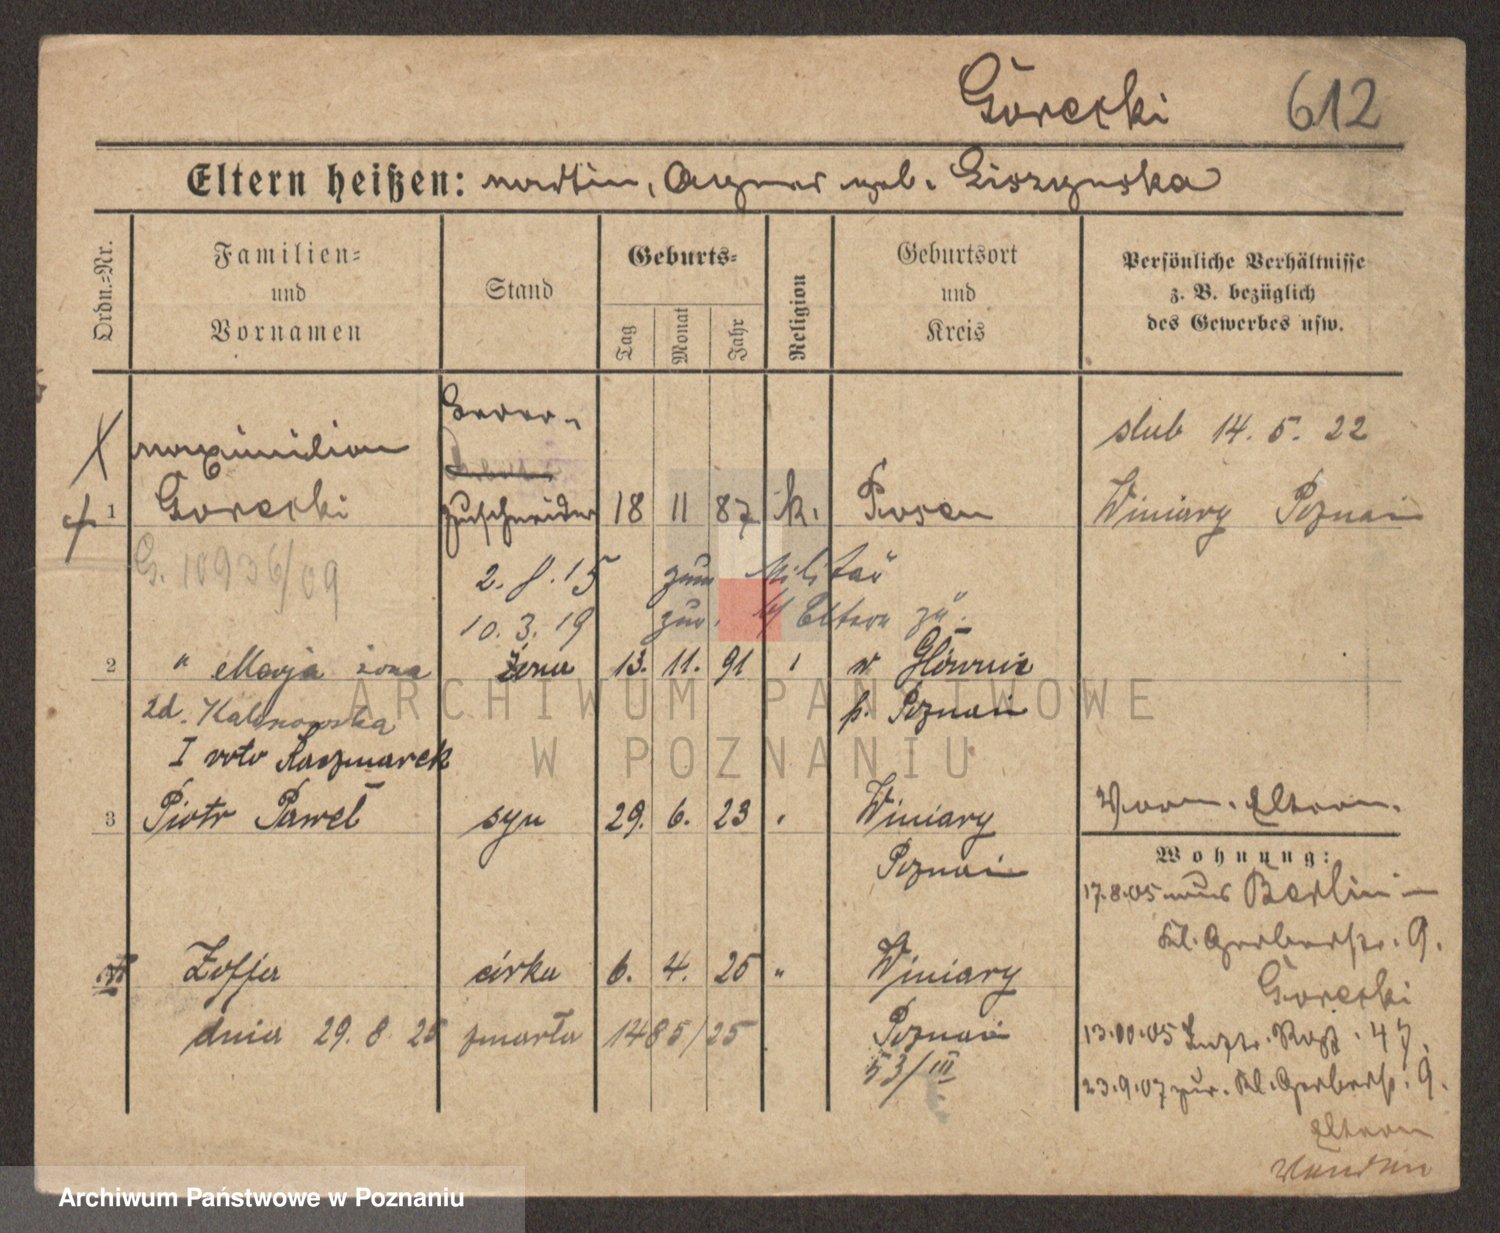 Górecki 612
Eltern heißen: Martin, Agnes geb. Liszynska
Ordn.-Nr.
Familien-
und
Vornamen
Stand
Geburts-
Tag
Monat
Jahr
Religion
Geburtsort
und
Kreis
Persönliche Verhältnisse
z. B. bezüglich
des Gewerbes usw.
Maximilian
1 Górecki
zuschneider 18 11 87 k. Posen
ślub 14. 5. 22
Winiary Poznań
G. 10936/09
2. 8. 15 zum Militär
10. 3. 19 zur. Eltern zu.
2 " Marja żona żona 13. 11. 91 w Głównie
zd. Kalinowska p. Poznań
I voto Kaczmarek
3 Piotr Paweł syn 29. 6. 23 Winiary
Poznań
Vorm. Eltern.
Wohnung:
17.8.05 aus Berlin
Kl. Gerberstr. 9.
Górecki
13.10.05 47.
23.9.07 zur. Kl. Gerberstr. 9.
Eltern
Zofja córka 6. 4. 25 " Winiary
dnia 29. 8. 25 zmarła 1485/25 Poznań
53/III
ARCHIWUM PAŃSTWOWE
W POZNANIU
Archiwum Państwowe w Poznaniu